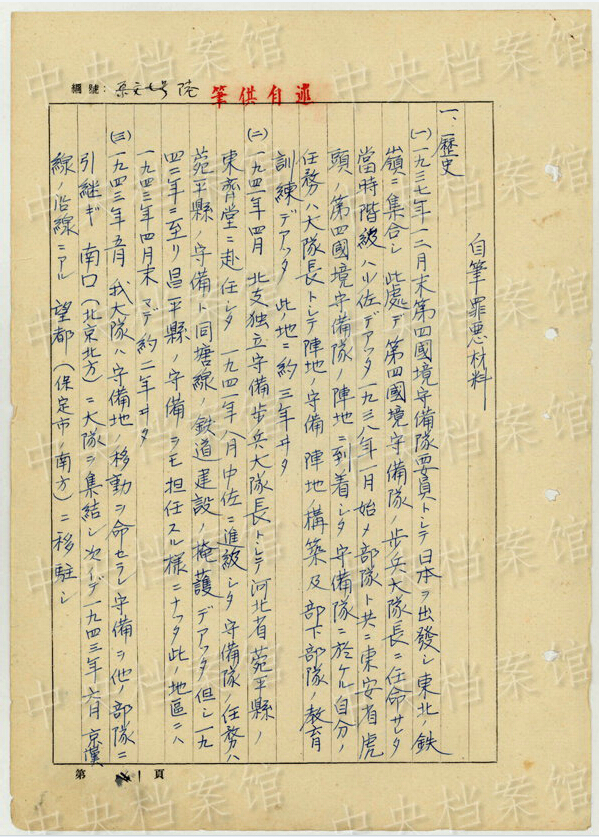 編號:
筆供自述
自筆罪惡材料
一、歷史
(一) 一九三七年一二月末第四國境守備隊要員トシテ日本ヲ出發シ東北ノ鉄
嶺ニ集合シ 此處デ第四國境守備隊ノ歩兵大隊長ニ任命サレタ
當時階級ハ少佐デアッタ 一九三八年一月始メ部隊ト共ニ東安省虎
頭ノ第四國境守備隊ノ陣地ニ到着シタ 守備隊ニ於ケル自分ノ
任務ハ大隊長トシテ陣地ノ守備 陣地ノ構築及部下部隊ノ教育
訓練デアッタ 此地ニ約三年ヰタ
(二) 一九四一年四月 北支独立守備歩兵大隊長トシテ河北省苑平縣ノ
東齊堂ニ赴任シタ 一九四一年八月中佐ニ進級シタ 守備隊ノ任務ハ
苑平縣ノ守備ト同塘線ノ鉄道建設ノ掩護デアッタ 但シ一九
四二年ニ至リ昌平縣ノ守備ヲモ担任スル様ニナッタ 此ノ地區ニハ
一九四三年四月末マデ約二年ヰタ
(三) 一九四三年五月 我大隊ハ守備地ノ移動ヲ命セラレ守備ヲ他ノ部隊ニ
引継ギ 南口(北京北方)ニ大隊ヲ集結シ次イデ一九四三年六月 京漢
線ノ沿線ニアル 望都(保定市ノ南方)ニ移駐シ
第 1 頁
中央档案馆
中央档案馆
中央档案馆
中央档案馆